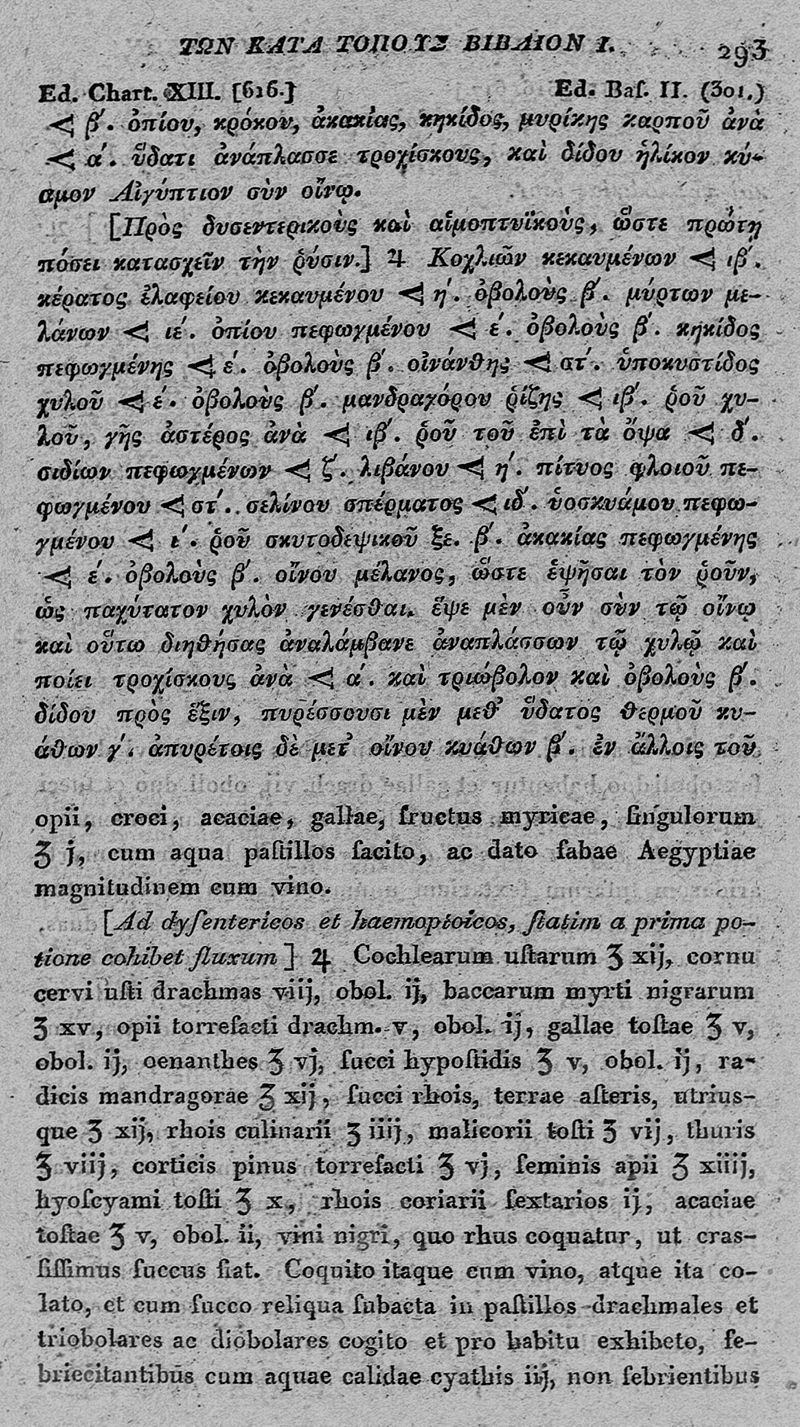 ΤΩΝ ΚΑΤΑ ΤΟΠΟΥΣ ΒΙΒΛΙΟΝ Ι. 293
Ed. Chart. XIII. [616.] Ed. Baf. II. (301.)
⋖ β΄. ὀπίου, κρόκου, ἀκακίας, κηκίδος, μυρίκης καρποῦ ἀνὰ
⋖ α΄. ὕδατι ἀνάπλασσε τροχίσκους, καὶ δίδου ἡλίκον κύ-
αμον Αἰγύπτιον σὺν οἴνῳ.
[Πρὸς δυσεντερικοὺς καὶ αἱμοπτυϊκοὺς, ὥστε πρώτῃ
πόσει κατασχεῖν τὴν ῥύσιν.] ♃ Κοχλιῶν κεκαυμένων ⋖ ιβ΄.
κέρατος ἐλαφείου κεκαυμένου ⋖ η΄. ὀβολοὺς β΄. μύρτων με-
λάνων ⋖ ιε΄. ὀπίου πεφωγμένου ⋖ ε΄. ὀβολοὺς β΄. κηκίδος
πεφωγμένης ⋖ ε΄. ὀβολοὺς β΄. οἰνάνθης ⋖ στ΄. ὑποκυστίδος
χυλοῦ ⋖ ε΄. ὀβολοὺς β΄. μανδραγόρου ῥίζης ⋖ ιβ΄. ῥοῦ χυ-
λοῦ, γῆς ἀστέρος ἀνὰ ⋖ ιβ΄. ῥοῦ τοῦ ἐπὶ τὰ ὄψα ⋖ δ΄.
σιδίων πεφωγμένων ⋖ ζ΄. λιβάνου ⋖ η΄. πίτυος φλοιοῦ πε-
φωγμένου ⋖ στ΄. σελίνου σπέρματος ⋖ ιδ΄. ὑοσκυάμου πεφω-
γμένου ⋖ ι΄. ῥοῦ σκυτοδεψικοῦ ξε. β΄. ἀκακίας πεφωγμένης
⋖ ε΄. ὀβολοὺς β΄. οἴνου μέλανος, ὥστε ἑψῆσαι τὸν ῥοῦν,
ὡς παχύτατον χυλὸν γενέσθαι. ἕψε μὲν οὖν σὺν τῷ οἴνῳ
καὶ οὕτω διηθήσας ἀναλάμβανε ἀναπλάσσων τῷ χυλῷ καὶ
ποίει τροχίσκους ἀνὰ ⋖ α΄. καὶ τριώβολον καὶ ὀβολοὺς β΄.
δίδου πρὸς ἕξιν, πυρέσσουσι μὲν μεθ᾽ ὕδατος θερμοῦ κυ-
άθων γ΄. ἀπυρέτοις δὲ μετ᾽ οἴνου κυάθων β΄. ἐν ἄλλοις τοῦ
opii, croci, acaciae, gallae, fructus myricae, ſingulorum
ʒ j, cum aqua paſtillos facito, ac dato fabae Aegyptiae
magnitudinem cum vino.
[Ad dyſentericos et haemoptoicos, ſtatim a prima po-
tione cohibet fluxum] ♃ Cochlearum uſtarum ʒ xij, cornu
cervi uſti drachmas viij, obol. ij, baccarum myrti nigrarum
ʒ xv, opii torrefacti drachm. v, obol. ij, gallae toſtae ʒ v,
obol. ij, oenanthes ʒ vj, ſucci hypoſtidis ʒ v, obol. ij, ra-
dicis mandragorae ʒ xij, ſucci rhois, terrae aſteris, utrius-
que ʒ xij, rhois culinarii ʒ iiij, malicorii toſti ʒ vij, thuris
ʒ viij, corticis pinus torrefacti ʒ vj, ſeminis apii ʒ xiiij,
hyoſcyami toſti ʒ x, rhois coriarii ſextarios ij, acaciae
toſtae ʒ v, obol. ii, vini nigri, quo rhus coquatur, ut cras-
ſiſſimus ſuccus fiat. Coquito itaque cum vino, atque ita co-
lato, et cum ſucco reliqua ſubacta in paſtillos drachmales et
triobolares ac diobolares cogito et pro habitu exhibeto, fe-
briecitantibus cum aquae calidae cyathis iij, non febrientibus